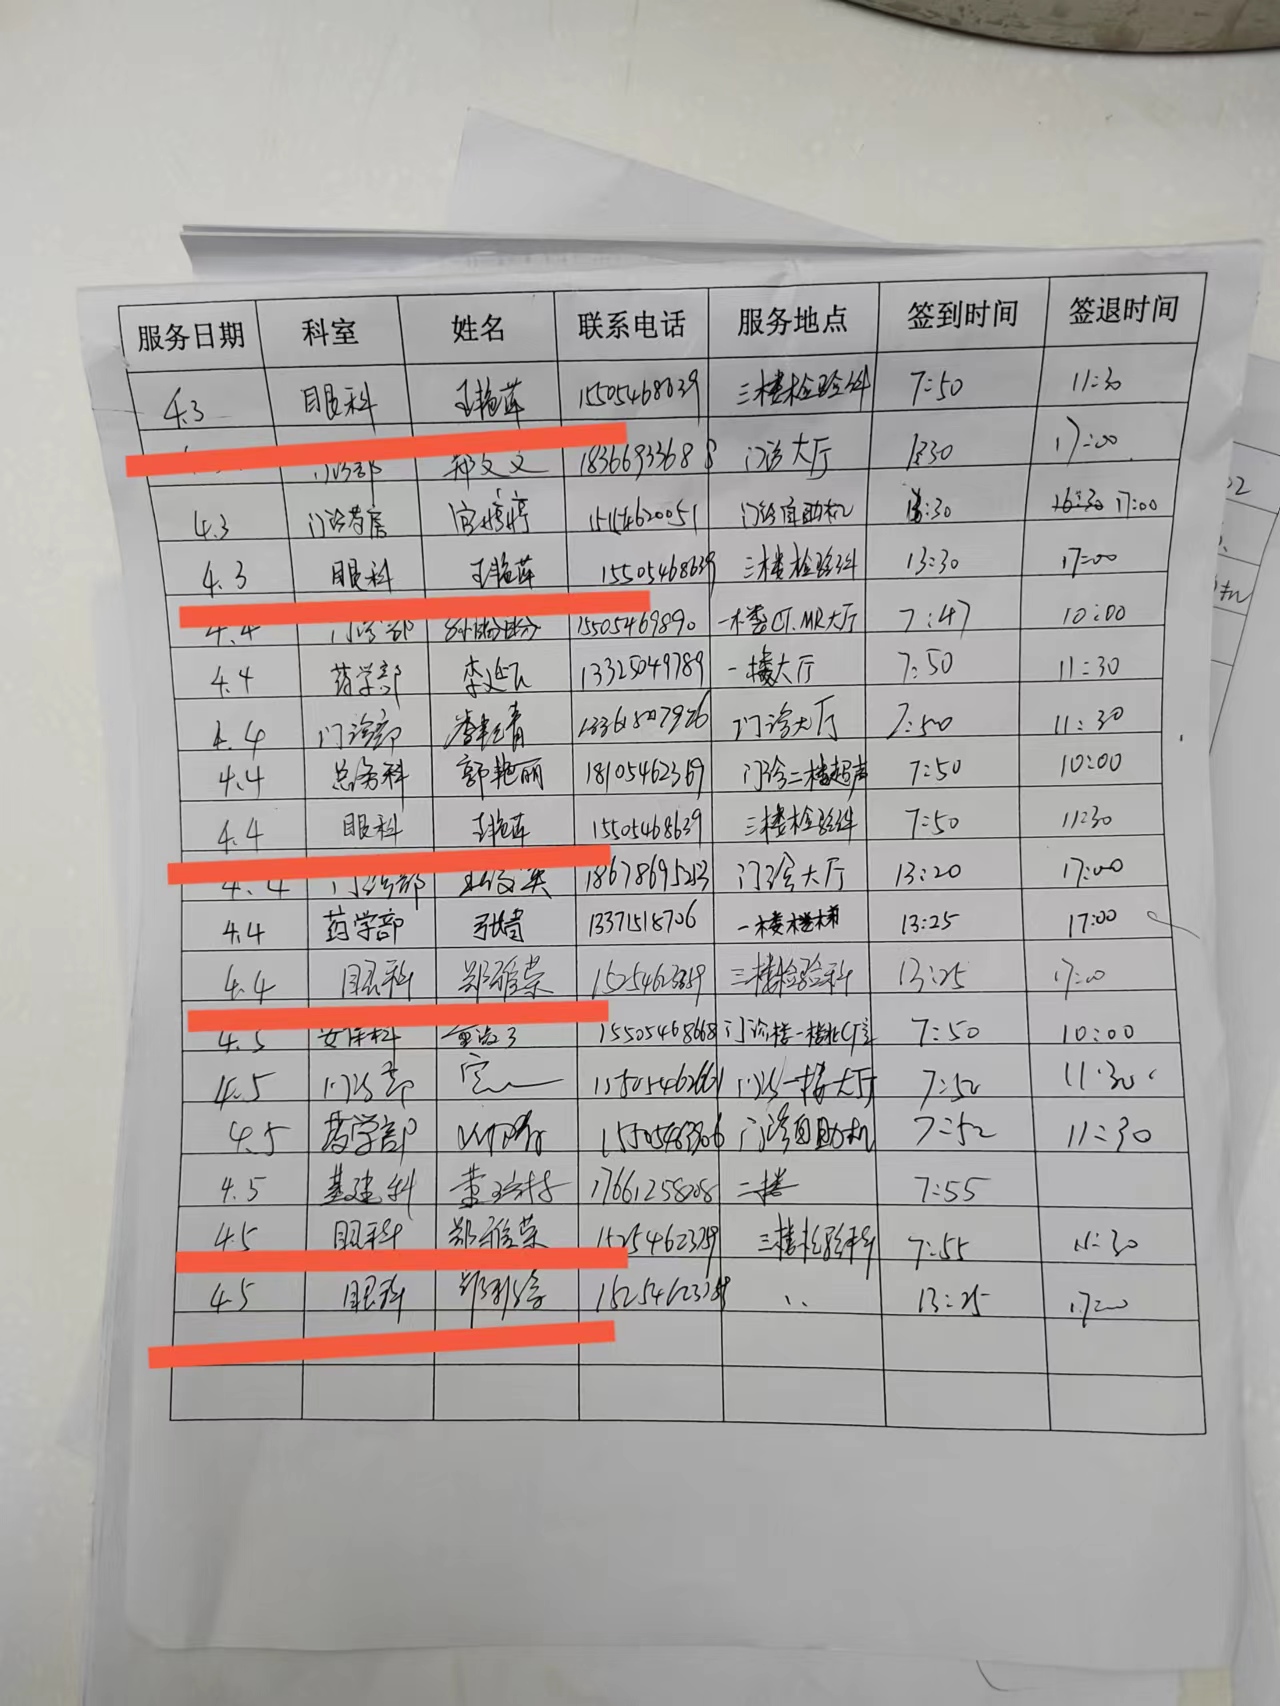 服务日期 科室 姓名 联系电话 服务地点 签到时间 签退时间
4.3 眼科 王艳萍 15505468639 三楼检验科 7:50 11:30
门诊部 郑文文 18366933688 门诊大厅 13:30 17:00
4.3 门诊药房 宫婷婷 15114620051 门诊自助机 13:30 16:30 17:00
4.3 眼科 王艳萍 15505468639 三楼检验科 13:30 17:00
4.4 门诊部 15505469890 一楼CT.MR大厅 7:47 10:00
4.4 药学部 李延飞 13325049789 一楼大厅 7:50 11:30
4.4 门诊部 门诊大厅 7:50 11:30
4.4 总务科 郭艳丽 18105462369 门诊二楼超声 7:50 10:00
4.4 眼科 王艳萍 15505468639 三楼检验科 7:50 11:30
4.4 门诊部 门诊大厅 13:20 17:00
4.4 药学部 张青 13371518706 一楼楼梯 13:25 17:00
4.4 眼科 郑雅荣 15254623259 三楼检验科 13:25 17:00
4.5 安保科 15505468668 门诊楼一楼北CT室 7:50 10:00
4.5 门诊部 门诊一楼大厅 7:50 11:30
4.5 药学部 门诊自助机 7:52 11:30
4.5 基建科 17661258008 二楼 7:55
4.5 眼科 郑雅荣 15254623259 三楼检验科 7:55 11:30
4.5 眼科 15254623259 〃 13:25 17:00